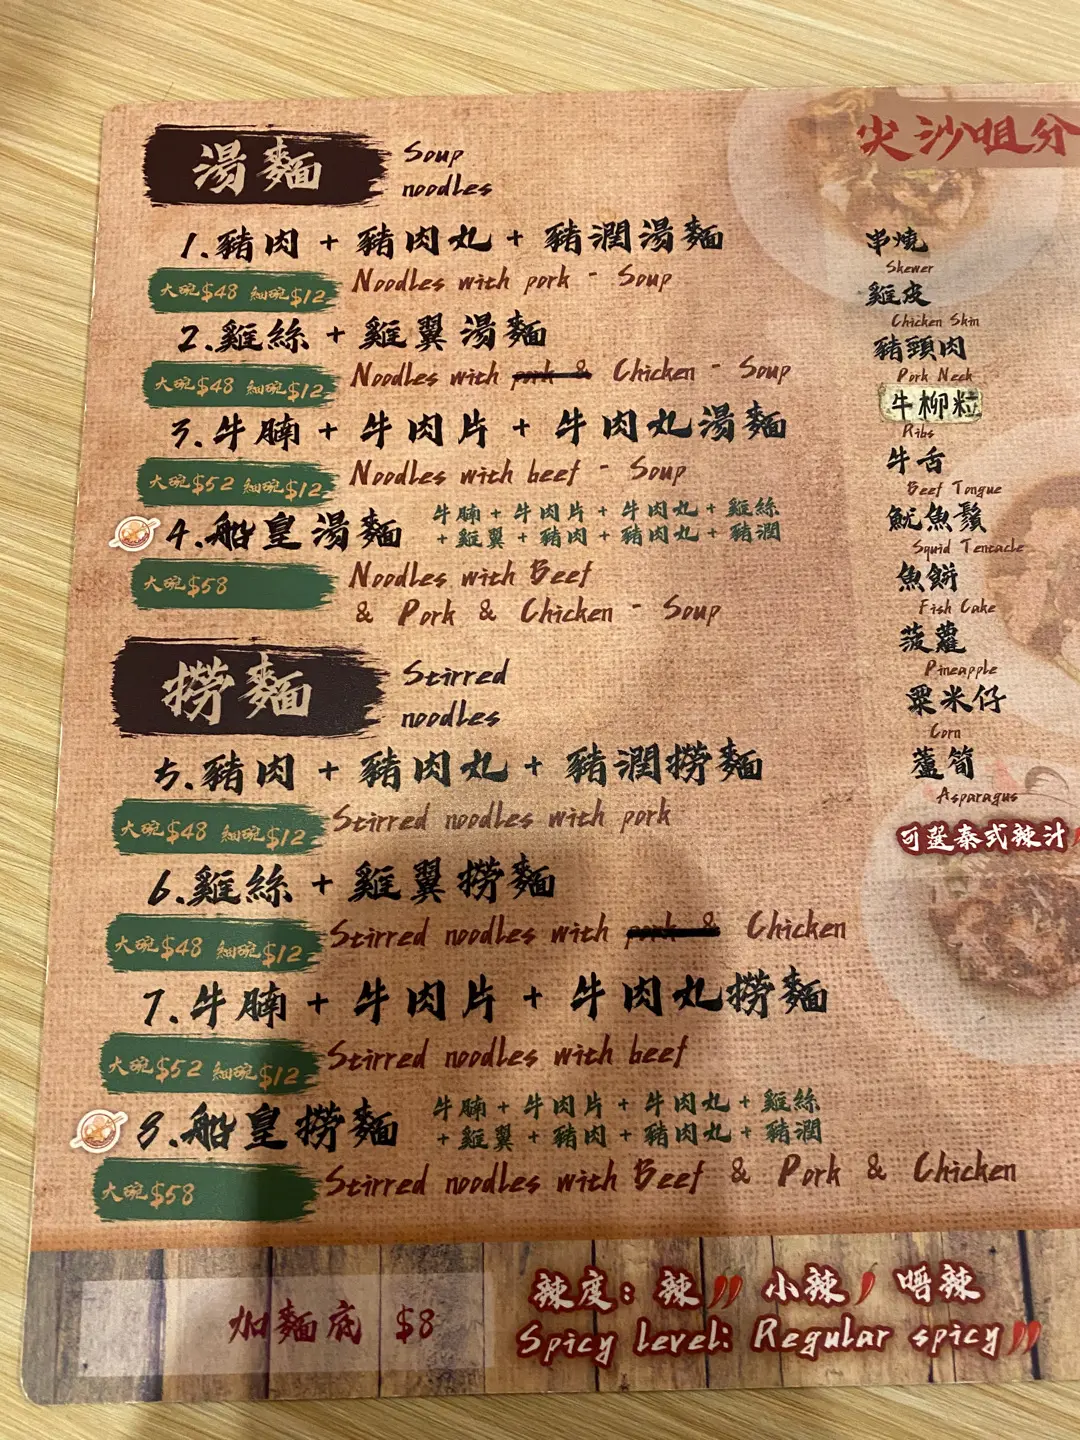 湯麵
Soup
noodles
1.豬肉 + 豬肉丸 + 豬潤湯麵
大碗$48 細碗$12
Noodles with pork - Soup
2.雞絲 + 雞翼湯麵
大碗$48 細碗$12
Noodles with pork & Chicken - Soup
3.牛腩 + 牛肉片 + 牛肉丸湯麵
大碗$52 細碗$12
Noodles with beef - Soup
4.船皇湯麵
牛腩 + 牛肉片 + 牛肉丸 + 雞絲
+ 雞翼 + 豬肉 + 豬肉丸 + 豬潤
大碗$58
Noodles with Beef
& Pork & Chicken - Soup
撈麵
Stirred
noodles
5.豬肉 + 豬肉丸 + 豬潤撈麵
大碗$48 細碗$12
Stirred noodles with pork
6.雞絲 + 雞翼撈麵
大碗$48 細碗$12
Stirred noodles with pork & Chicken
7.牛腩 + 牛肉片 + 牛肉丸撈麵
大碗$52 細碗$12
Stirred noodles with beef
8.船皇撈麵
牛腩 + 牛肉片 + 牛肉丸 + 雞絲
+ 雞翼 + 豬肉 + 豬肉丸 + 豬潤
大碗$58
Stirred noodles with Beef & Pork & Chicken
加麵底 $8
辣度: 辣 小辣 唔辣
Spicy Level: Regular spicy
尖沙咀分
串燒
Skewer
雞皮
Chicken Skin
豬頸肉
Pork Neck
牛柳粒
Ribs
牛舌
Beef Tongue
魷魚鬚
Squid Tentacle
魚餅
Fish Cake
菠蘿
Pineapple
粟米仔
Corn
蘆筍
Asparagus
可選泰式辣汁